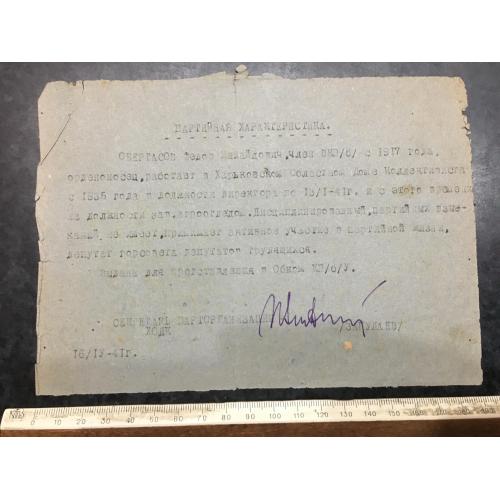 ПАРТИЙНАЯ ХАРАКТЕРИСТИКА.
ОБЕРГАСОВ Федор Михайлович, член ВКП/б/ с 1917 года,
орденоносец, работает в Харьковском Областном Доме Коллективиста
с 1936 года в должности директора до 15/I-41г. и с этого времени
в должности зав. агроотделом. Дисциплинированный, партийных взыс-
каний, не имеет, принимает активное участие в партийной жизни,
депутат горсовета депутатов трудящихся.
Выдана для представления в Обком КП/б/У.
СЕКРЕТАРЬ ПАРТОРГАНИЗАЦИИ
ХОДК
16/IУ-41г.
0 10 20 30 40 50 60 70 80 90 100 110 120 130 140 150 160 170